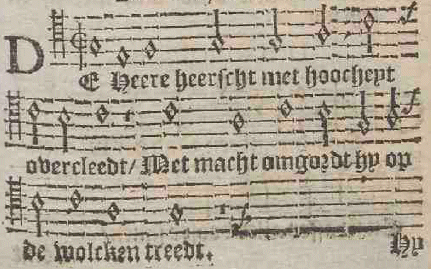 DE Heere heerscht met hoocheyt
overcleedt/ Met macht omgordt hy op
de wolcken treedt. Hy